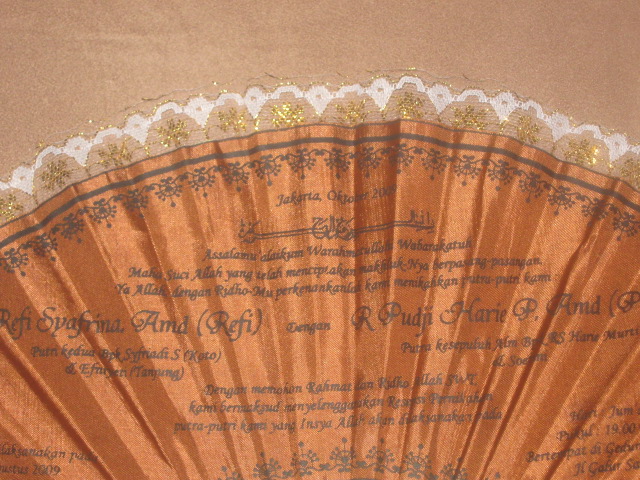 Jakarta, Oktober 2009
Assalamu'alaikum Warahmatullahi Wabarakatuh
Maha Suci Allah yang telah menciptakan makhluk-Nya berpasang-pasangan.
Ya Allah dengan Ridho-Mu perkenankanlah kami menikahkan putra-putri kami
Refi Syafrina, Amd (Refi)
Dengan
R Pudji Harie P, Amd
Putri kedua Bpk Syfriadi S (Kato)
& Efniyeti (Tanjung)
Putra kesepuluh Alm Bpk RS Harie
&
Dengan memohon Rahmat dan Ridho Allah SWT,
kami bermaksud menyelenggarakan Resepsi Pernikahan
putra-putri kami yang Insya Allah akan dilaksanakan pada
dilaksanakan pada
2009
Hari : Jum
Pukul : 19.00
Bertempat di Gedun
Jl